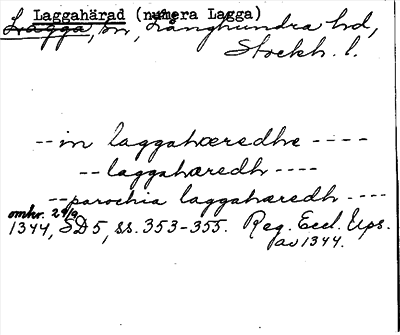 Laggahärad (numera Lagga)
Lagga, sn, Långhundra hd,
Stockh. l.
-- in laggahæredhe ----
-- laggahæredh ----
-- parochia laggahæredh ----
omkr. 24/9
1344, SD 5, ss. 353-355. Reg. Eccl. Ups.
av 1344.